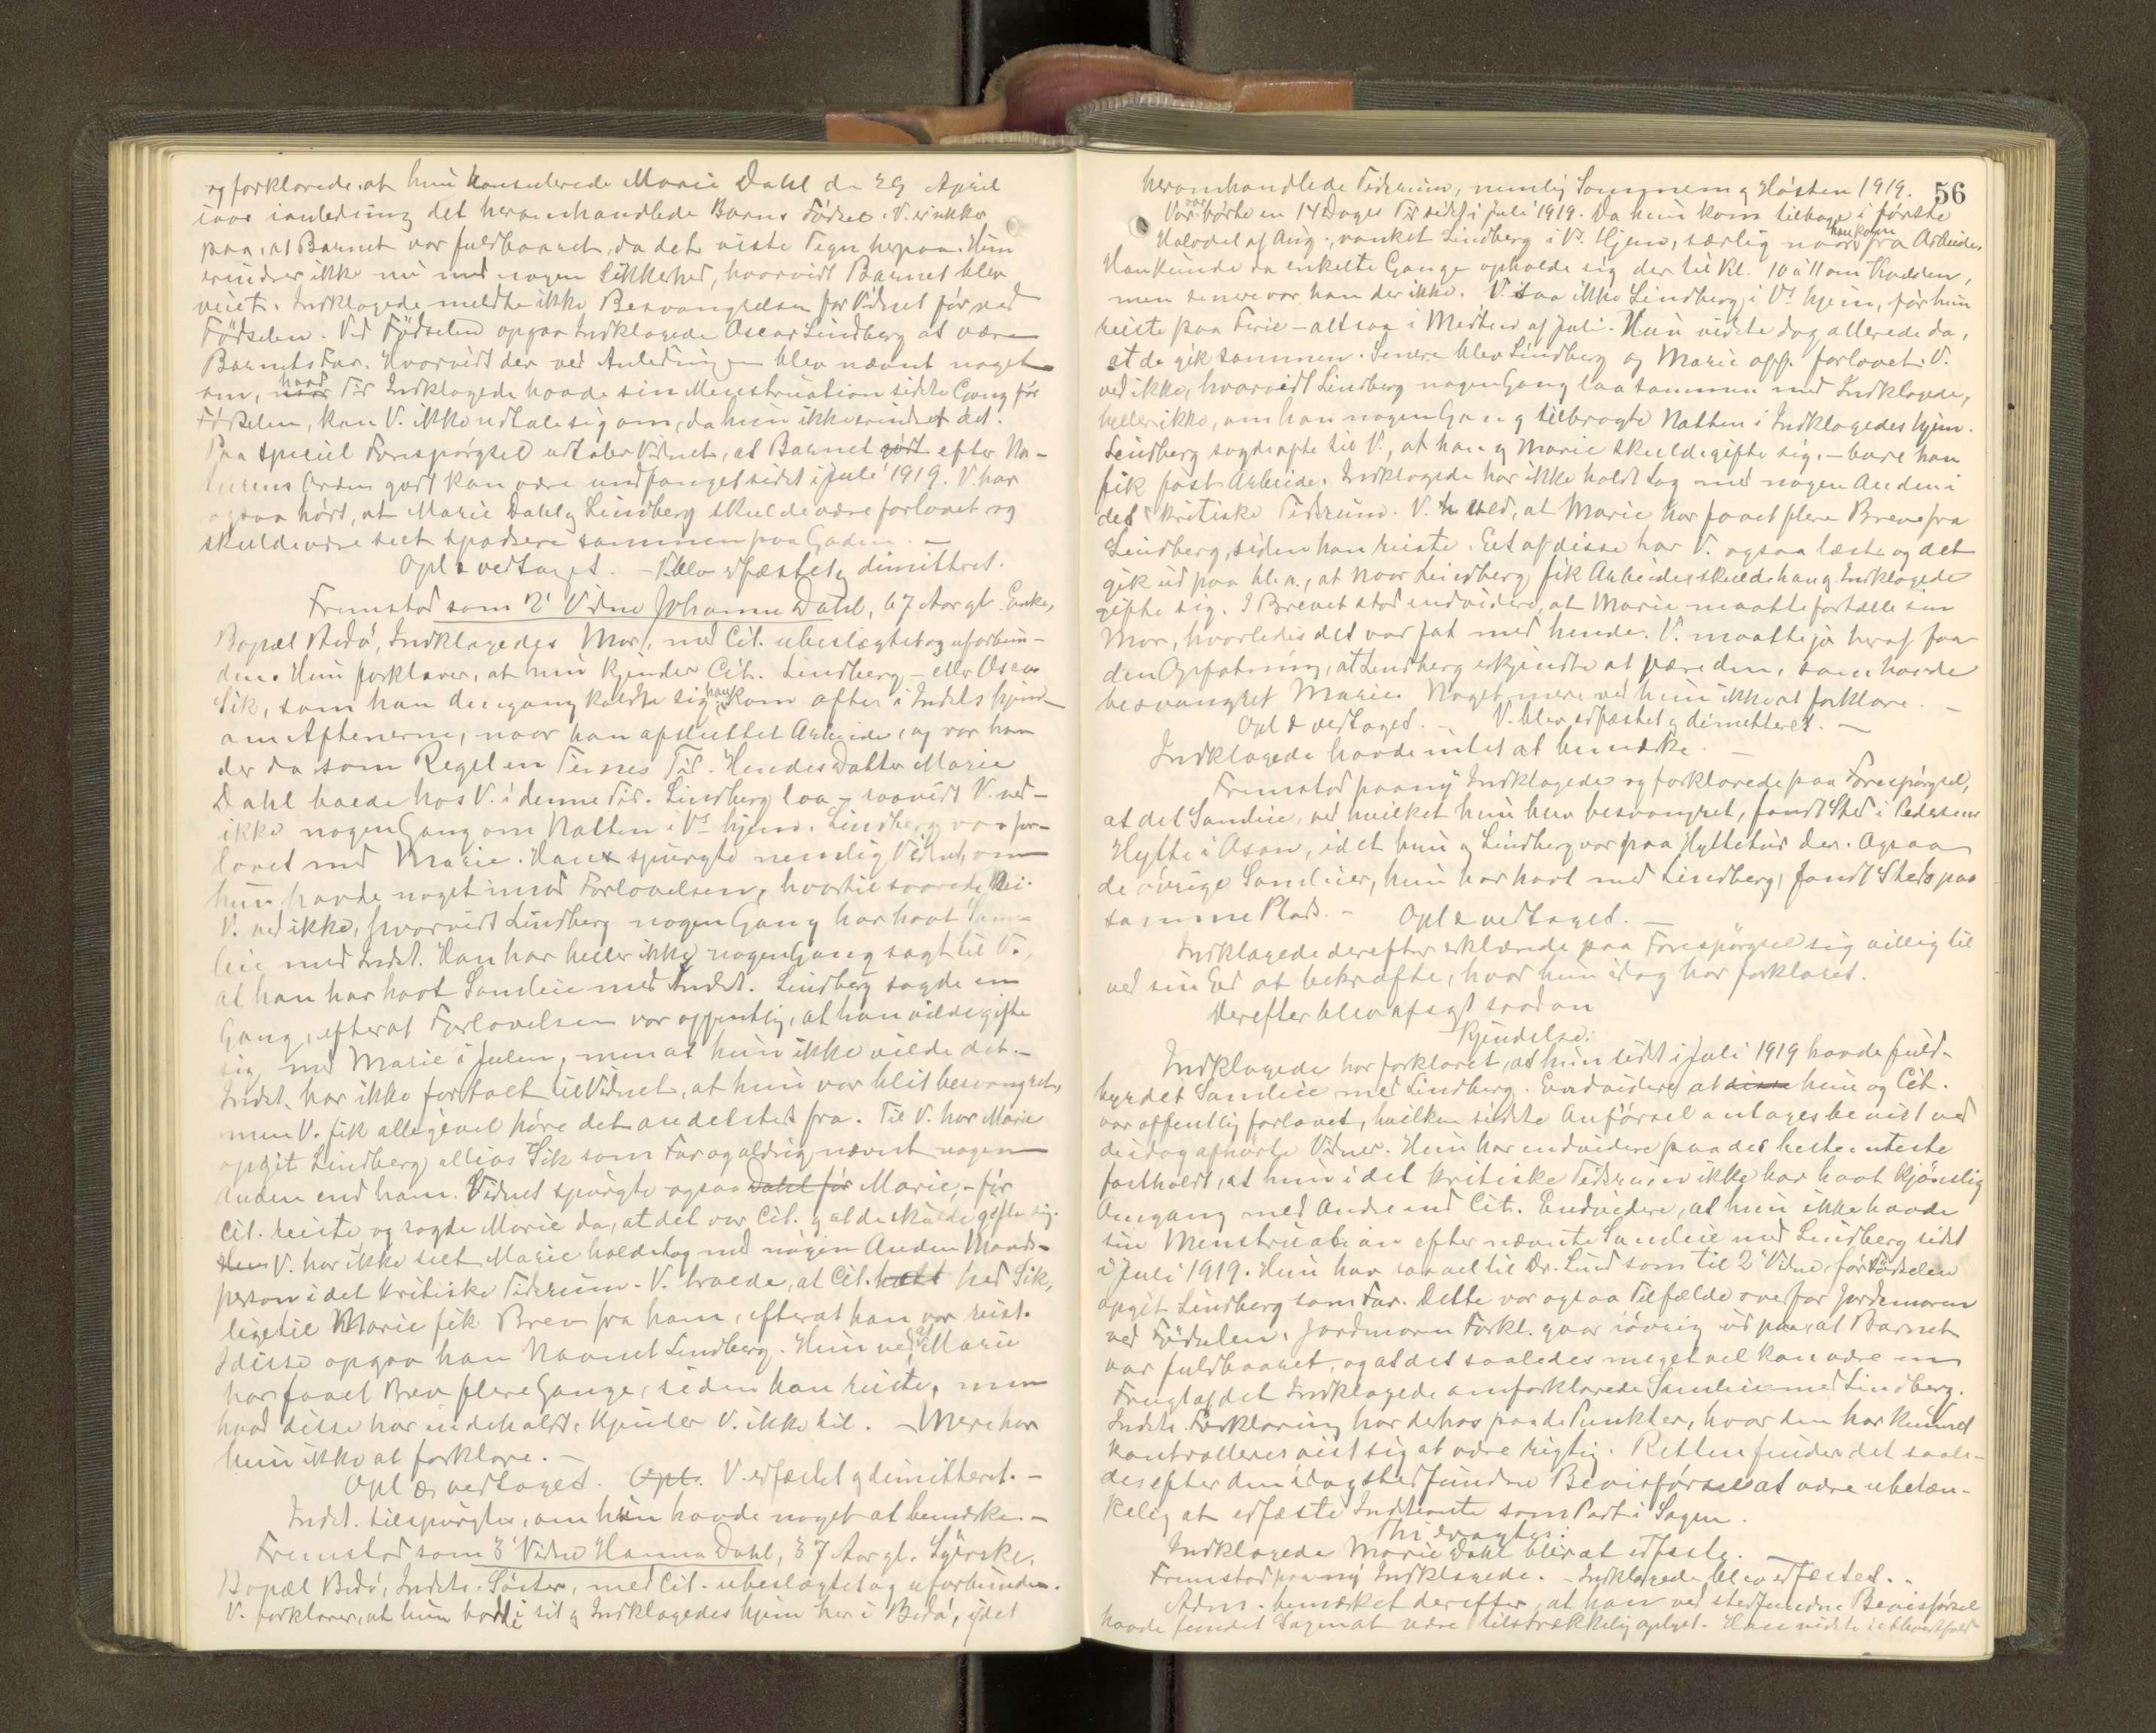 og forklarede, at hun konsulerede Marie Dahl d. 29 April
iaar ianledning det heromhandlede Barns Fødsel. V. er sikker
paa, at Barnet var fuldbaaret, da det viste Tegn herpaa. Hun
erindrer ikke nu med nogen Sikkerhed, hvorvidt Barnet blev
veiet. Indklagede meldte ikke Besvangrelsen for Vidnet før ved
Fødselen. Ved Fødselen opgav Indklagede Oscar Lindberg at være
Barnets Far. Hvorvidt der ved Anledningen blev nævnt noget
om, naar hvad Tid Indklagede havde sin Menstruation sidste Gang før
Fødselen, kan V. ikke udtale sig om, da hun ikke erindret det.
Paa speciel Forespørgsel udtaler Vidnet, at Barnet godt efter Na-
turens Orden godt kan være undfanget sidst i Juli 1919. V. har
ogsaa hørt, at Marie Dahl og Lindberg skulde være forlovet og
skulde være seet spadsere sammen paa Gaden. —
Opl & vedtaget. — Blev edfæstet og dimitteret.
Fremstod som 2' Vidne Johanne Dahl, 67 Aar gl. Enke,
Bopæl Bodø, Indklagedes Mor, med Cit. ubeslægtet og uforbun-
den. Hun forklarer, at hun kjender Cit. Lindberg — eller Oscar
Sik, som han dengang kaldte sig, han kom ofte i Indkls hjem
om Aftenerne, naar han afsluttet Arbeidet, og var han
der da som Regel en Times Tid. Hendes Datter Marie
Dahl boede hos V. i denne Tid. Lindberg laa — saavidt V. ved —
ikke nogen Gang om Natten i Vs hjem. Lindberg var for-
lovet med Marie. Han spurgte nemlig Vidnet, om
hun havde noget imod Forlovelsen, hvortil svarede Nei.
V. ved ikke, hvorvidt Lindberg nogen Gang har havt Sam-
leie med Indkl. Han har heller ikke nogen Gang sagt til V.,
at han har havt Samleie med Indkl. Lindberg sagde en
Gang, efterat Forlovelsen var offentlig, at han vilde gifte
sig med Marie i Julen, men at hun ikke vilde det. —
Indkl. har ikke fortalt til Vidnet, at hun var blit besvangret,
men V. fik alligevel høre det andetsteds fra. Til V. har Marie
opgit Lindberg alias Sik som Far og aldrig nævnt nogen
Anden end ham. Vidnet spurgte ogsaa Dahl før Marie, — før
Cit. reiste og sagde Marie da, at det var Cit. og at de skulde gifte sig.
Hun V. har ikke seet Marie holde Lag med nogen Anden Mands-
person i det kritiske Tidsrum. V. troede, at Cit. hedt hed Sik,
ligetil Marie fik Brev fra ham, efterat han var reist.
I disse opgav han Navnet Lindberg. Hun ved, at Marie
har faaet Brev flere Gange, siden han reiste, men
hvad disse har indeholdt, kjender V. ikke til. — Mere har
hun ikke at forklare. —
Opl & vedtaget. Opl. V. edfæstet og dimitteret. —
Indkl. tilspurgtes, om hun havde noget at bemærke. —
Fremstod som 3' Vidne Hanna Dahl, 37 Aar gl. Syerske,
Bopæl Bodø, Indkls. Søster, med Cit. ubeslægtet og uforbunden.
V. forklarer, at hun bodde i sit og Indklagedes hjem her i Bodø, i det
56
heromhandlede Tidsrum, nemlig Sommeren og Høsten 1919.
V. var borte en 14 Dages Tid sidst i Juli 1919. Da hun kom tilbage i første
Halvdel af Aug., vanket Lindberg i Vs. Hjem, særlig naar han kom fra Arbeidet,
Han kunde da enkelte Gange opholde sig der til Kl. 10 à 11 om Kvelden,
men senere var han der ikke. V. saa ikke Lindberg i Vs hjem, før hun
reiste paa Ferie — altsaa i Midten af Juli. Hun vidste dog allerede da,
at de gik sammen. Senere blev Lindberg og Marie off. forlovet. V.
ved ikke, hvorvidt Lindberg nogen Gang laa sammen med Indklagede,
heller ikke, om han nogen Gang tilbragte Natten i Indklagedes hjem.
Lindberg sagde ofte til V., at han og Marie skulde gifte sig, — bare han
fik fast Arbeide. Indklagede har ikke holdt Lag med nogen Anden i
det kritiske Tidsrum. V. ved, at Marie har faaet flere Breve fra
Lindberg, siden han reiste. Et af disse har V. ogsaa læst og det
gik ud paa bl. a., at naar Lindberg fik Arbeide, skulde han og Indklagede
gifte sig. I Brevet stod endvidere, at Marie maatte fortælle sin
Mor, hvorledes det var fat med hende. V. maatte jo heraf faa
den Opfatning, at Lindberg erkjendte at være den, som havde
besvangret Marie. Noget mere ved hun ikke at forklare. —
Opl & vedtaget. — V. blev edfæstet og dimitteret. —
Indklagede havde intet at bemærke. —
Fremstod paany Indklagede og forklarede paa Forespørgsel,
at det Samleie, ved hvilket hun blev besvangret, fandt Sted i Pedersens
Hytte i Asan, idet hun og Lindberg var paa Hyttetur der. Ogsaa
de øvrige Samleier, hun har havt med Lindberg, fandt Sted paa
samme Plads. — Opl & vedtaget. —
Indklagede derefter erklærede paa Forespørgsel sig villig til
ved sin Ed at bekræfte, hvad hun idag har forklaret.
Derefter blev afsagt saadan
Kjendelse:
Indklagede har forklaret, at hun sidst i Juli 1919 havde fuld-
byrdet Samleie med Lindberg. Endvidere at disse hun og Cit.
var offentlig forlovet, hvilken sidste Anførsel antages bevist ved
de idag afhørte Vidner. Hun har endvidere paa det bestemteste
fastholdt, at hun i det kritiske Tidsrum ikke har havt kjønslig
Omgang med Andre end Cit. Endvidere, at hun ikke havde
sin Menstruation efter nævnte Samleie med Lindberg sidst
i Juli 1919. Hun har saavel til Dr. Lund som til 2' Vidne, før Fødselen
opgit Lindberg som Far. Dette var ogsaa Tilfælde overfor Jordmoren
ved Fødselen. Jordmorens Forkl. gaar iøvrig ud paa, at Barnet
var fuldbaaret, og at det saaledes meget vel kan være en
Frugt af det Indklagede omforklarede Samleie med Lindberg.
Indkls. Forklaring har derhos paa de Punkter, hvor den har kunnet
kontrolleres vist sig at være rigtig. Retten finder det saale-
des efter den idag stedfundne Bevisførsel at være ubetæn-
kelig at edfæste Indstevnte som Part i Sagen.
Thi eragtes:
Indklagede Marie Dahl blir at edfæste. —
Fremstod paany Indklagede. — Indklagede blev edfæstet. —
Adm. bemærket derefter, at han ved stedfundne Bevisførsel
havde fundet Sagen at være tilstrækkelig oplyst. Han vidste i ethvertfald